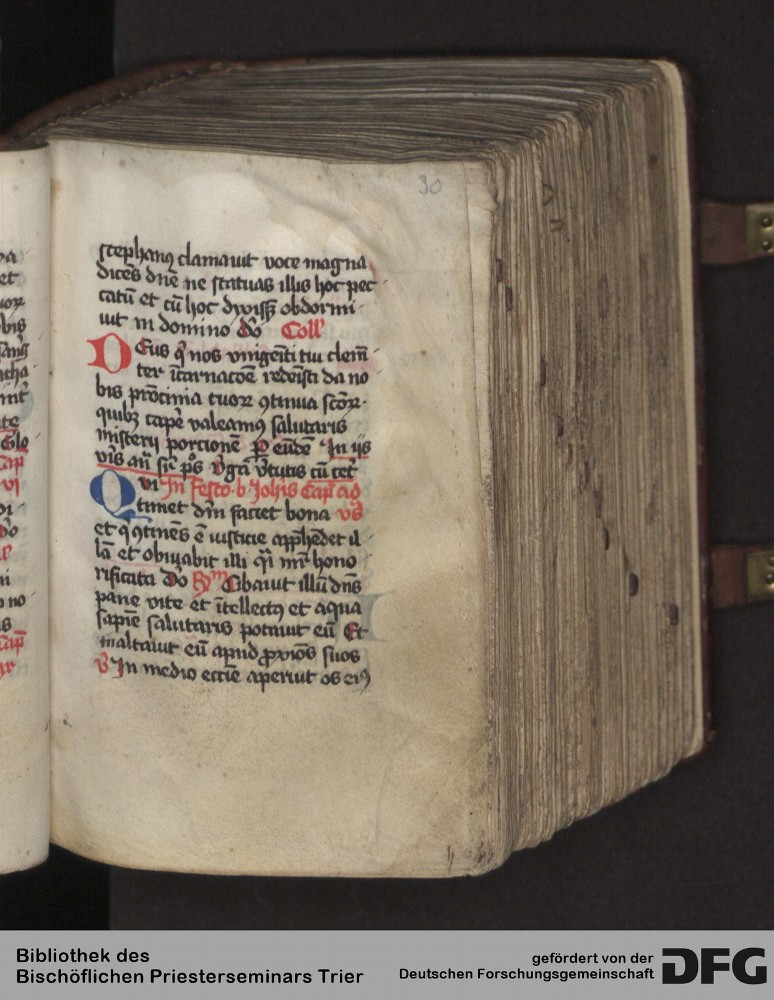 30
stephanꝰ clamauit voce magna
dicēs dn̄e ne statuas illis hoc pec
catū et cū hoc dixissꝫ obdormi
uit in domino do Coll'
DEus q̇ nos vnigeīti tui clem̄
ter īcarnacōe redeīsti da no
bis pr̄ocinia tuoꝝ ꝯtinua sc̄oꝝ
quibꝫ cape' valeamꝰ salutaris
misterij porcionē P eūdē In iis
v̄is an̄ sic̄ p̄s v̄gā v̄tutis cū cet'
QVi In Festo b Joh̄is Cap̄ ad
timet dm̄ faciet bona vs̄
et q̇ ꝯtinēs ē iusticie app̄hēdet il
lā et obuiabit illi q̄i mr̄ hono
rificata do Ry᷒ᵐ Cibauit illū dn̄s
pane vite et ītellectꝰ et aqua
sapīe salutaris potauit eū Et
exaltauit eū apud ꝓxīos suos
V̄ In medio ecc̄ie aperuit os eiꝰ
Bibliothek des
Bischöflichen Priesterseminars Trier
gefördert von der
Deutschen Forschungsgemeinschaft
DFG